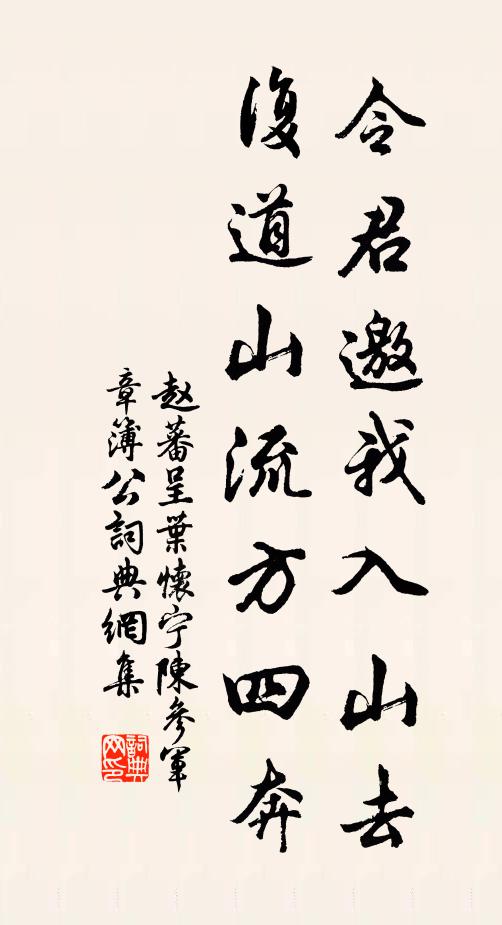 令君邀我入山去
復道山流方四奔
赵蕃呈葉懷宁陳參軍
章簿公詞典網集
詞典網印